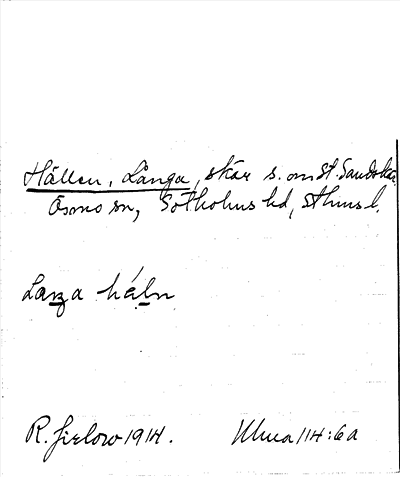 Hällen, Långa, skär s. om St. Sandskär.
Ösmo sn, Sotholms hd, Sthms l.
Laŋa häln
R. Jirlow 1914.
Ulma 114:6a